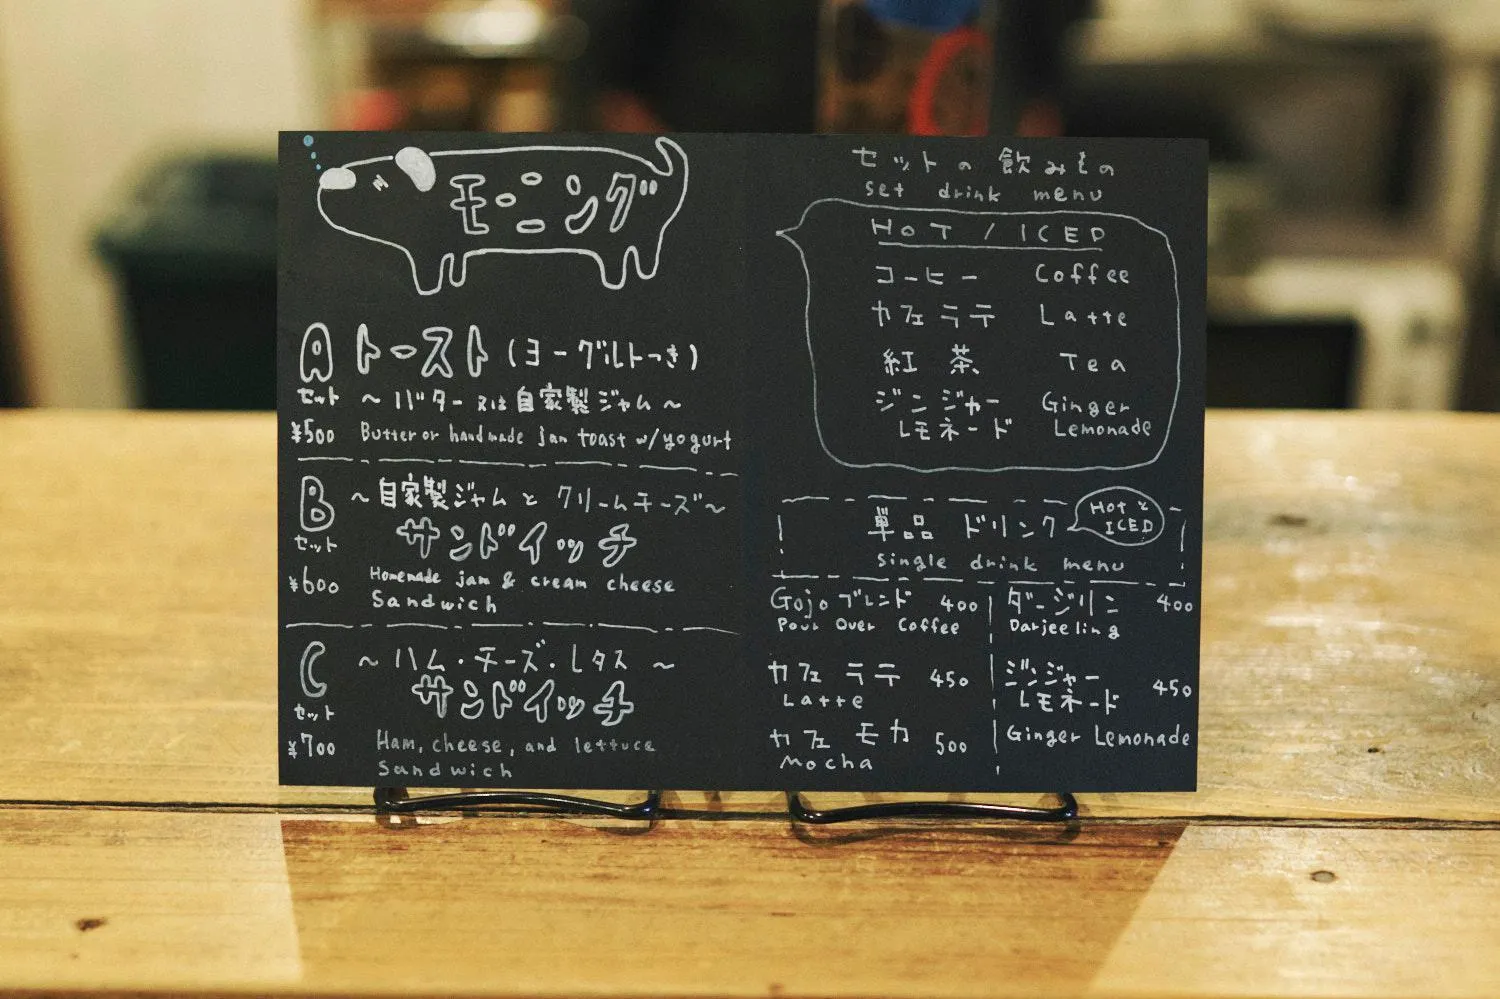 モーニング
A トースト (ヨーグルトつき)
セット ～バター又は自家製ジャム～
¥500 Butter or handmade jam toast w/yogurt
B ～自家製ジャムと クリームチーズ～
セット サンドイッチ
¥600 Homemade jam & cream cheese
Sandwich
C ～ハム・チーズ・レタス～
セット サンドイッチ
¥700 Ham, cheese, and lettuce
Sandwich
セットの飲みもの
set drink menu
HOT / ICED
コーヒー Coffee
カフェラテ Latte
紅茶 Tea
ジンジャー Ginger
レモネード Lemonade
単品 ドリンク
HOT と
ICED
single drink menu
Gojoブレンド 400
Pour Over Coffee
カフェ ラテ 450
Latte
カフェ モカ 500
Mocha
ダージリン 400
Darjeeling
ジンジャー
レモネード 450
Ginger Lemonade